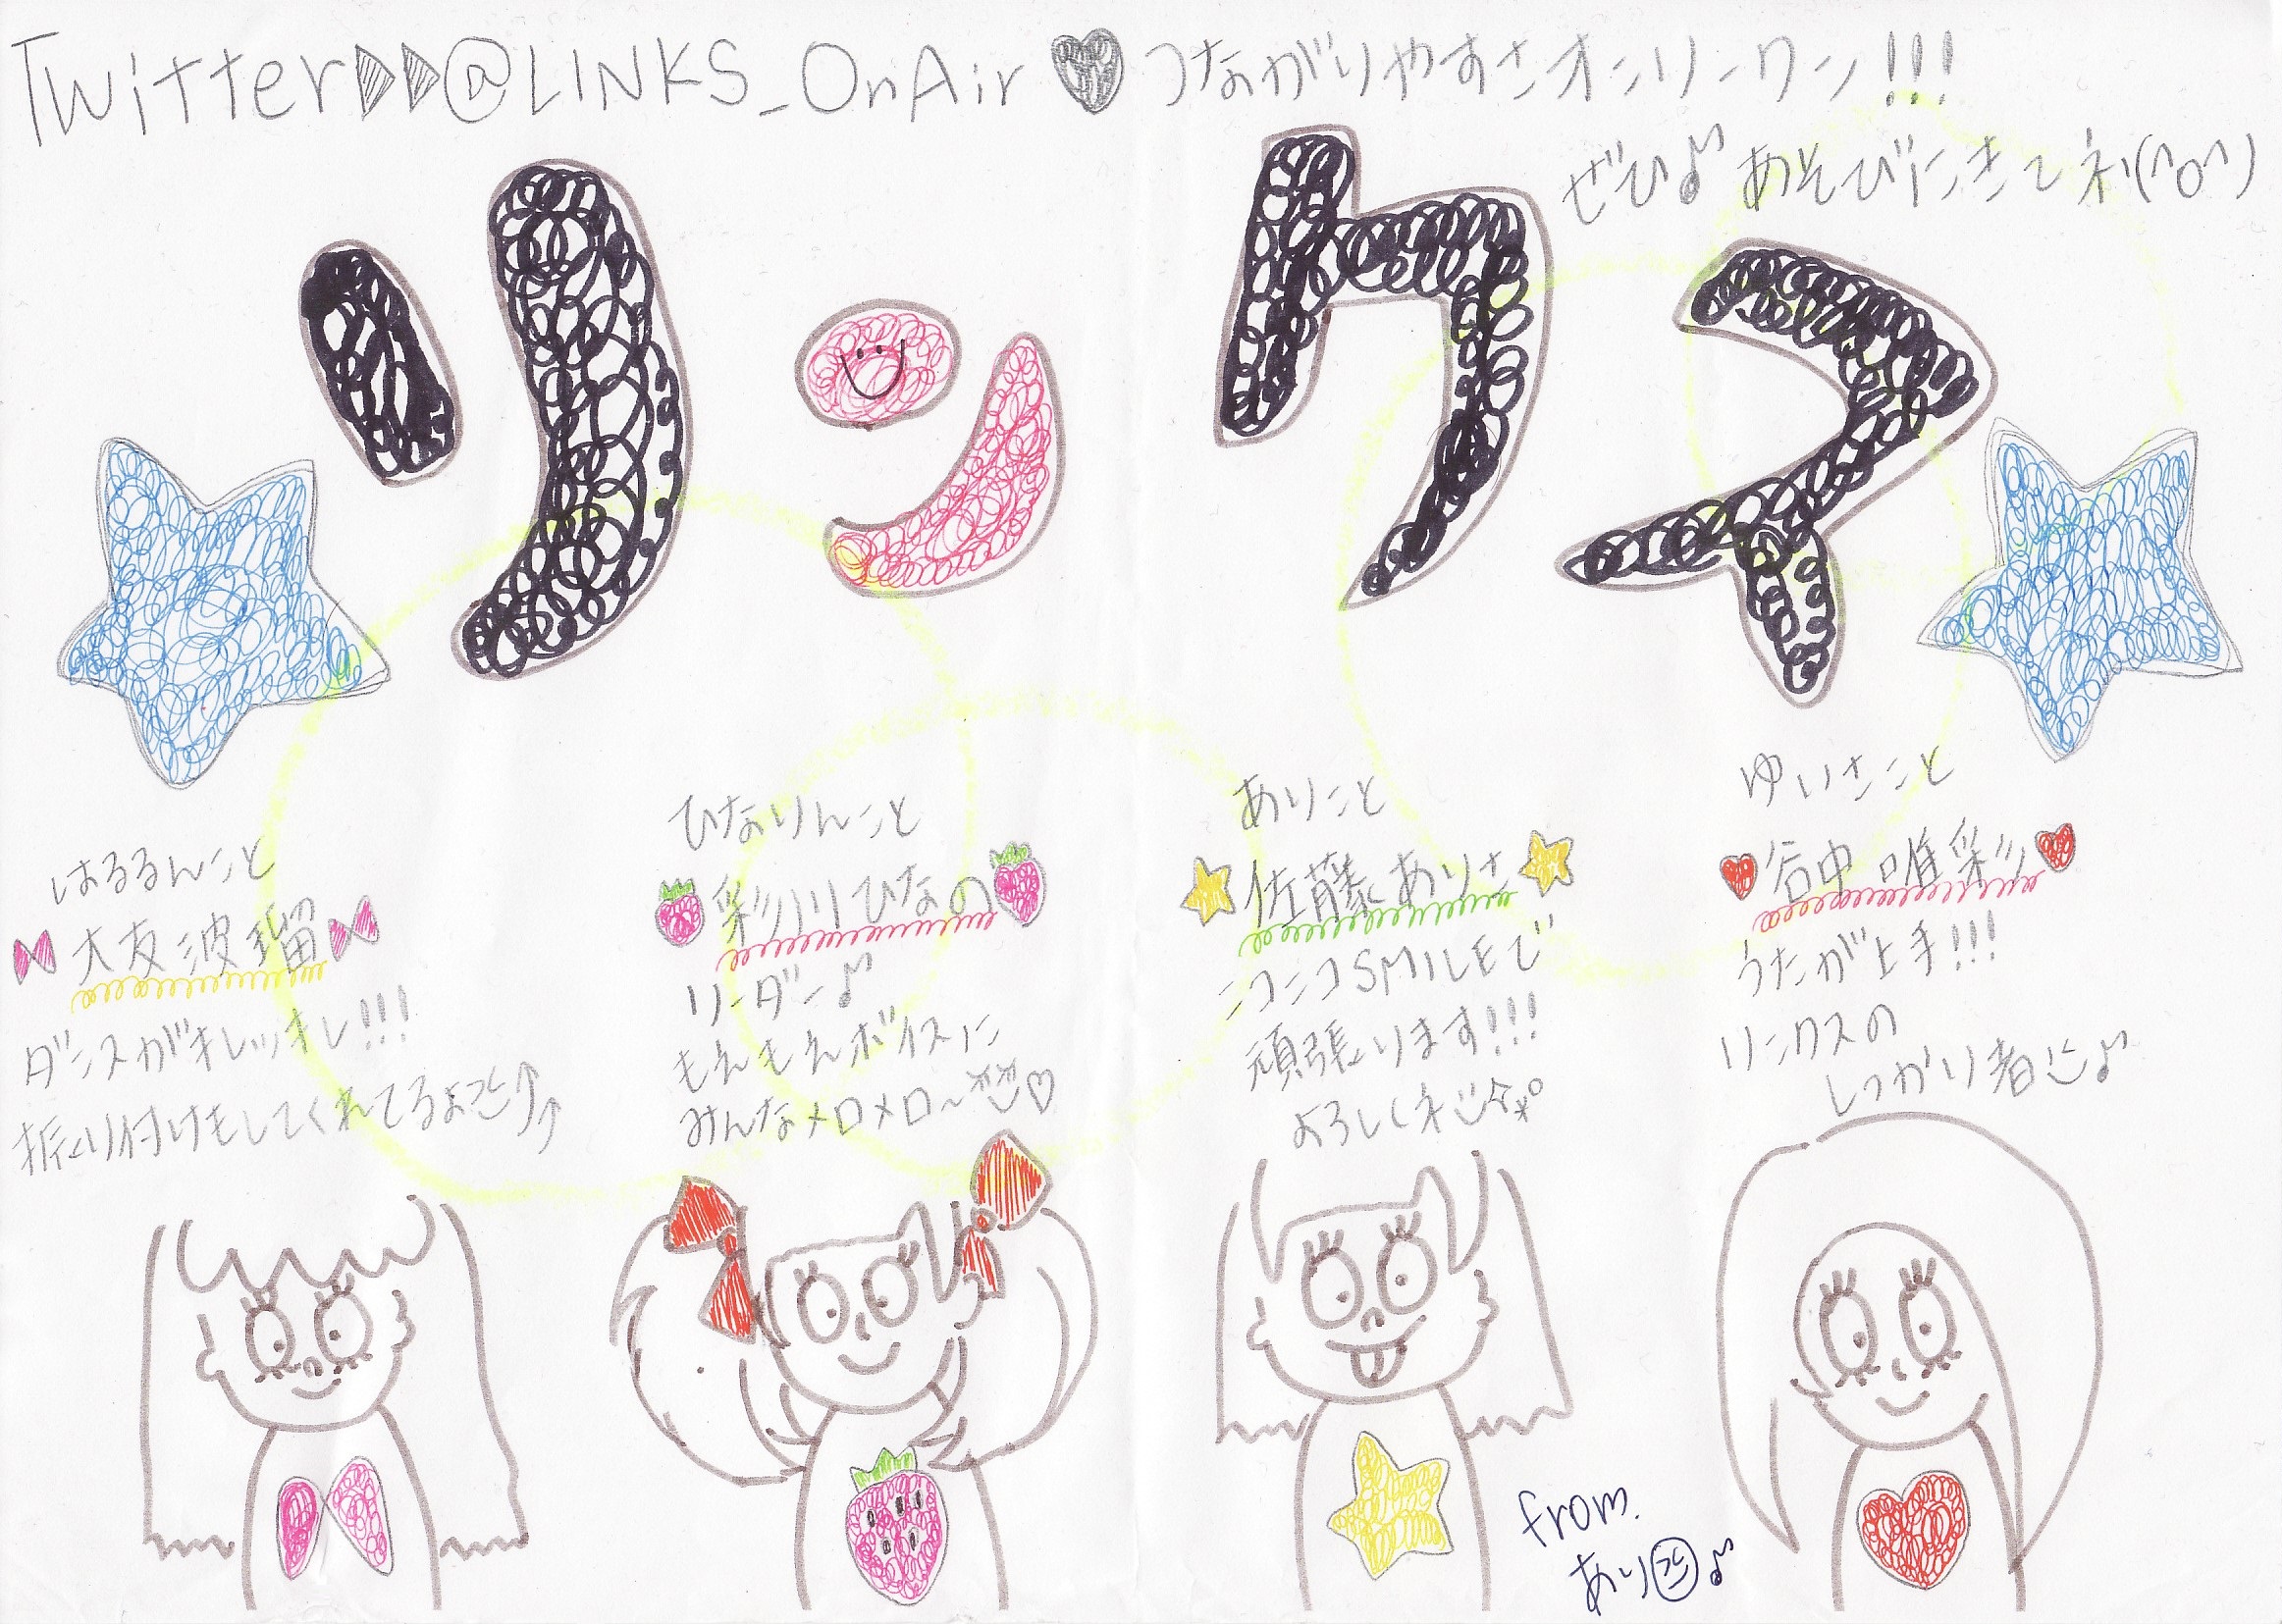 Twitter▷▷@LINKS_OnAir♥つながりやすさオンリーワン!!!
ぜひ♪あそびにきてネ(^o^)
リンクス
はるるんこと
大友波瑠
ダンスがキレッキレ!!!
振り付けもしてくれてるよ
ひなりんこと
彩川ひなの
リーダー♪
もえもえボイスに
みんなメロメロ〜♡
ありこと
佐藤ありさ
ニコニコSMILEで
頑張ります!!!
よろしくネ
ゆいさこと
谷中唯彩
うたが上手!!!
リンクスの
しっかり者♪
from.
あり♪